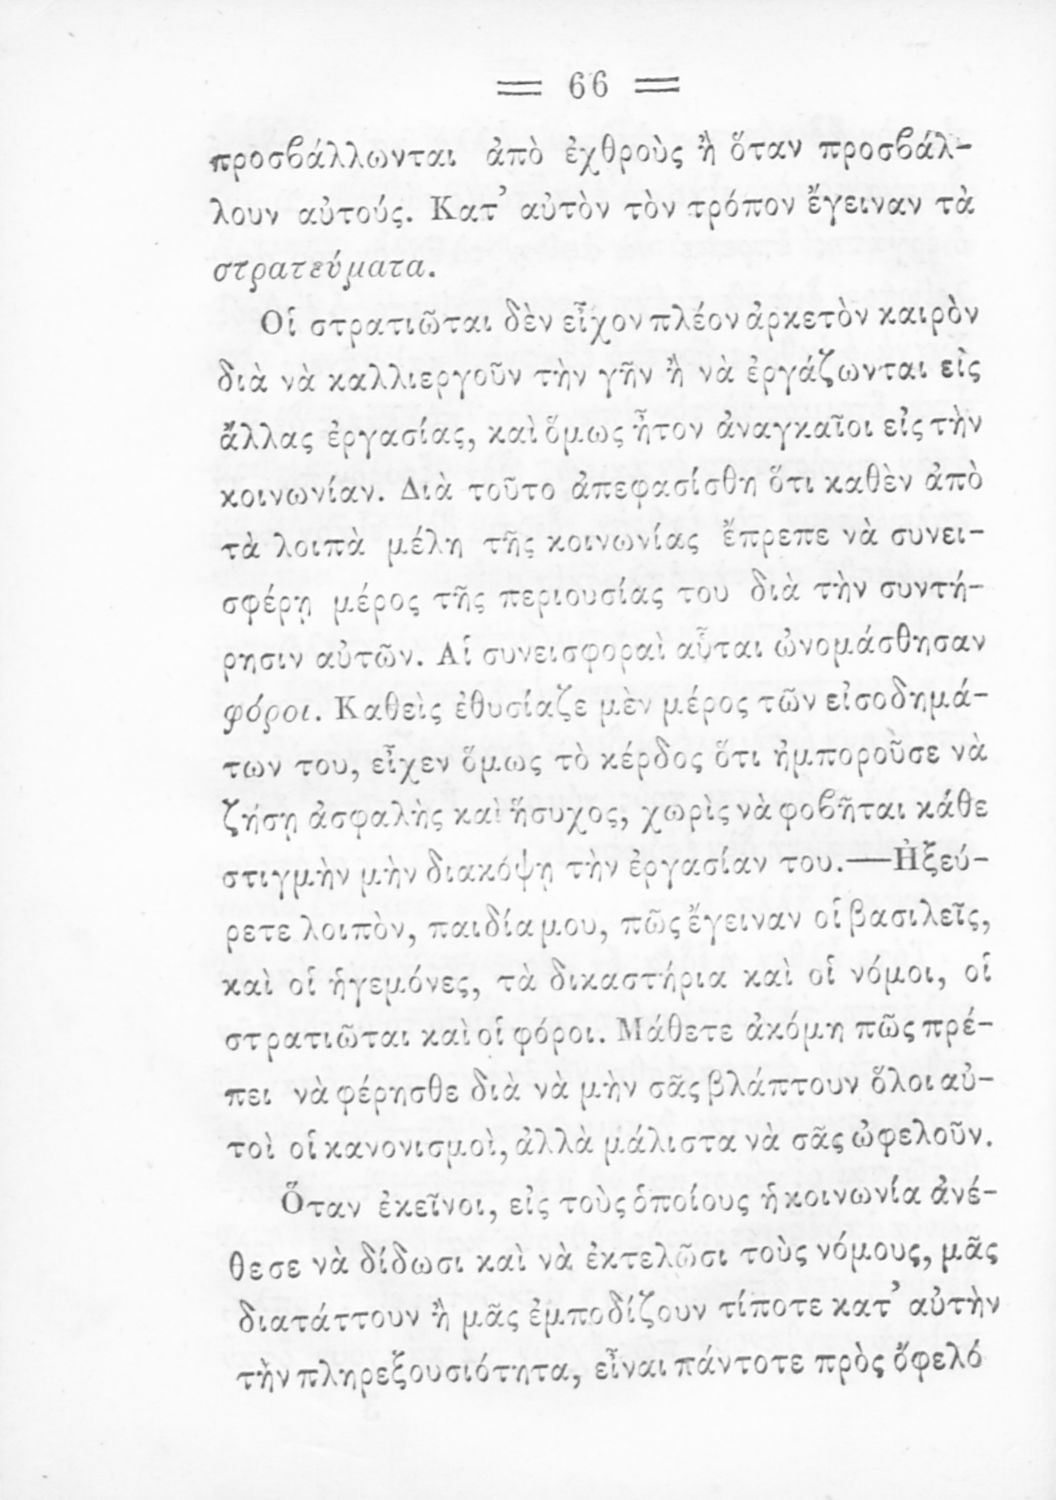 = 66 =
προσβάλλωνται ἀπὸ ἐχθροὺς ἢ ὅταν προσβάλ-
λουν αὐτούς. Κατ’ αὐτὸν τὸν τρόπον ἔγειναν τὰ
στρατεύματα.
Οἱ στρατιῶται δὲν εἶχον πλέον ἀρκετὸν καιρὸν
διὰ νὰ καλλιεργοῦν τὴν γῆν ἢ νὰ ἐργάζωνται εἰς
ἄλλας ἐργασίας, καὶ ὅμως ἦτον ἀναγκαῖοι εἰς τὴν
κοινωνίαν. Διὰ τοῦτο ἀπεφασίσθη ὅτι καθὲν ἀπὸ
τὰ λοιπὰ μέλη τῆς κοινωνίας ἔπρεπε νὰ συνει-
σφέρῃ μέρος τῆς περιουσίας του διὰ τὴν συντή-
ρησιν αὐτῶν. Αἱ συνεισφοραὶ αὗται ὠνομάσθησαν
φόροι. Καθεὶς ἐθυσίαζε μὲν μέρος τῶν εἰσοδημά-
των του, εἶχεν ὅμως τὸ κέρδος ὅτι ἠμποροῦσε νὰ
ζήσῃ ἀσφαλὴς καὶ ἥσυχος, χωρὶς νὰ φοβῆται κάθε
στιγμὴν μὴν διακόψῃ τὴν ἐργασίαν του.—Ἠξεύ-
ρετε λοιπὸν, παιδία μου, πῶς ἔγειναν οἱ βασιλεῖς,
καὶ οἱ ἡγεμόνες, τὰ δικαστήρια καὶ οἱ νόμοι, οἱ
στρατιῶται καὶ οἱ φόροι. Μάθετε ἀκόμη πῶς πρέ-
πει νὰ φέρησθε διὰ νὰ μὴν σᾶς βλάπτουν ὅλοι αὐ-
τοὶ οἱ κανονισμοὶ, ἀλλὰ μάλιστα νὰ σᾶς ὠφελοῦν.
Ὅταν ἐκεῖνοι, εἰς τοὺς ὁποίους ἡ κοινωνία ἀνέ-
θεσε νὰ δίδωσι καὶ νὰ ἐκτελῶσι τοὺς νόμους, μᾶς
διατάττουν ἢ μᾶς ἐμποδίζουν τίποτε κατ’ αὐτὴν
τὴν πληρεξουσιότητα, εἶναι πάντοτε πρὸς ὄφελό